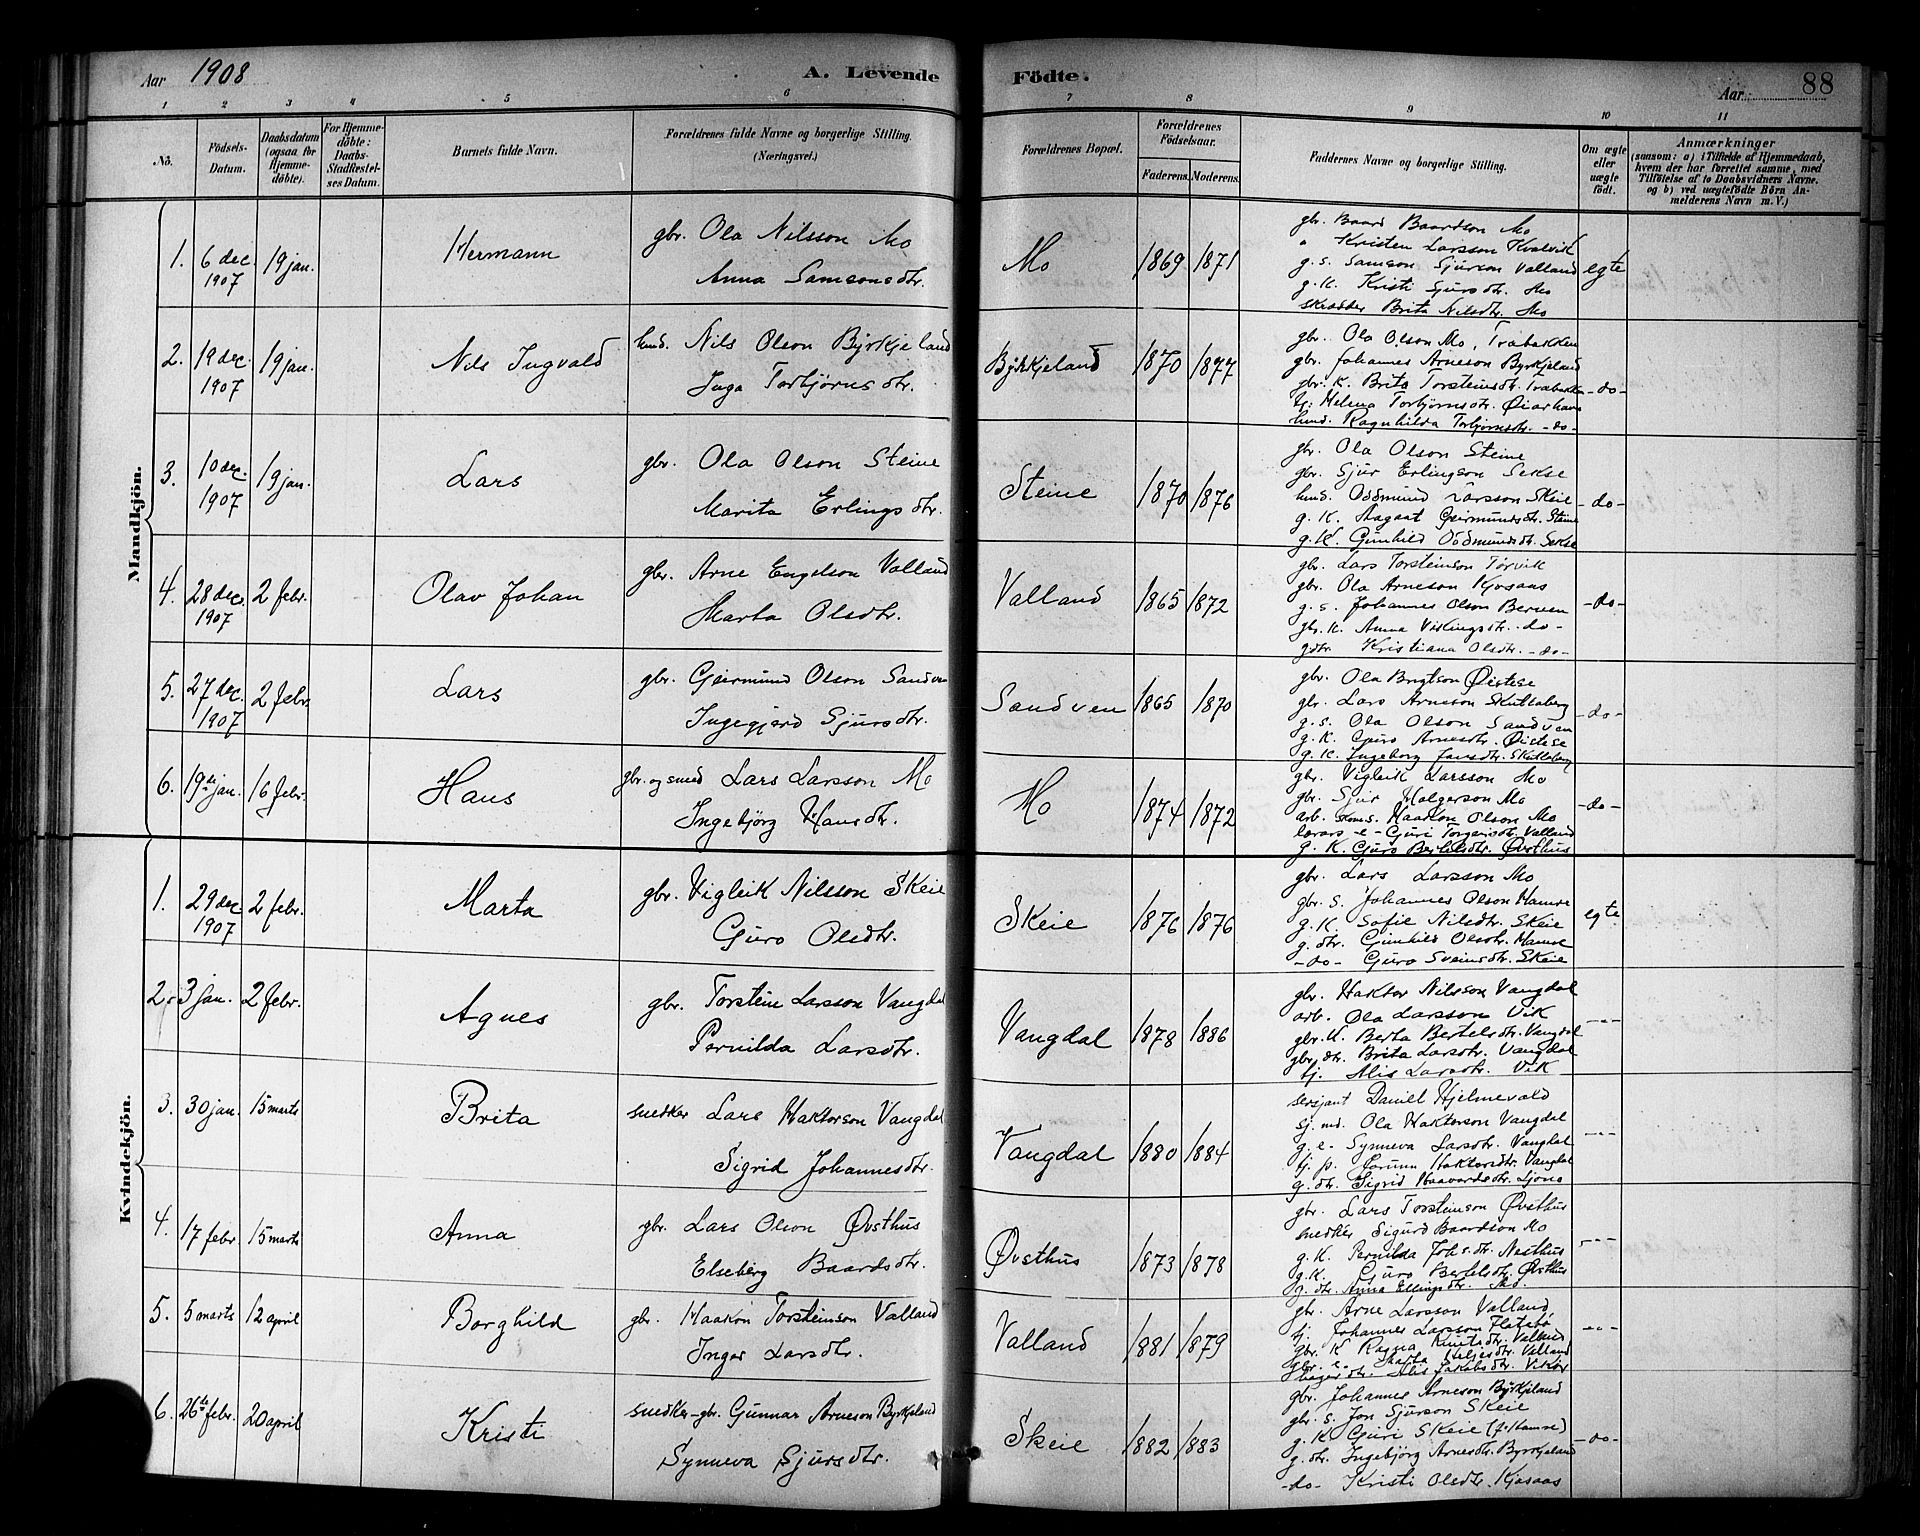 Aar 1908
A. Levende Födte.
Aar 88
1 2 3 4 5 6 7 8 9 10 11
No.
Födsels-Datum.
Daabsdatum (ogsaa for Hjemme-döbte).
For Hjemme-döbte: Daabs-Stadfæstel-ses Datum.
Barnets fulde Navn.
Forældrenes fulde Navne og borgerlige Stilling.
(Næringsvei.)
Forældrenes Bopæl.
Forældrenes Födselsaar.
Faderens. Moderens.
Faddernes Navne og borgerlige Stilling.
Om ægte eller uægte födt.
Anmærkninger
(saasom: a) i Tilfælde af Hjemmedaab,
hvem der har forrettet samme, med
Tilföielse af to Daabsvidners Navne.
og b) ved uægtefödte Börn An-
melderens Navn m. V.)
Mandkjön.
1. 6 dec. 1907 19 jan. Hermann
gbr. Ola Nilsson Mo
Anna Samsonsdtr.
Mo 1869 1871
gbr. Baard Baardson Mo
" Kristen Larsson Kvalvik
g.s. Samson Sjurson Valland
g.K. Kristi Sjursdtr. Mo
skredder Brita Nilsdtr. Mo
egte
2. 19 dec. 1907 19 jan. Nils Ingvald
husd. Nils Olson Byrkjeland
Inga Torbjørnsdtr.
Byrkjeland 1870 1877
gbr. Ola Olson Mo, Træbakken
gbr. Johannes Arneson Byrkjeland
gbr. K. Brita Torsteinsdtr. Træbakken
tj: Helena Torbjørnsdtr. Øiarhavn
husd. Ragnhilda Torbjørnsdtr. -do-
-do-
3. 10 dec. 1907 19 jan. Lars
gbr. Ola Olson Steine
Marita Erlingsdtr.
Steine 1870 1876
gbr. Ola Olson Steine
gbr. Sjur Erlingson Sekse
husd. Oddmund Larsson Skeie
g.K. Magaat Geirmundsdtr. Steine
g.K. Gunhild Oddmundsdt. Sekse
-do-
4. 28 dec. 1907 2 febr. Olav Johan
gbr. Arne Engelson Valland
Marta Olsdtr.
Valland 1865 1872
gbr. Lars Torsteinson Tørvik
gbr. Ola Arneson Kjosaas
g.s. Johannes Olson Berven
gbr. K. Anna Vikingsdtr. -do-
gdtr Kristiana Olsdtr. -do-
-do-
5. 27 dec. 1907 2 febr. Lars
gbr. Geirmund Olson Sandven
Ingegjerd Sjursdtr.
Sandven 1865 1870
gbr. Ola Brytson Øistese
gbr. Lars Arneson Skutlaberg
g.s. Ola Olson Sandven
g.K. Guro Arnesdtr. Øistese
g.K. Ingeborg Jansdtr. Skutlaberg
-do-
6. 19de jan. 16 febr. Hans
gbr. og smed Lars Larsson Mo
Ingebjørg Hansdtr.
Mo 1874 1872
gbr. Vigleik Larsson Mo
gbr. Sjur Holgerson Mo
arb. Haakon Olson Mo
lærars -e- Guri Torgeirsdtr. Valland
g.K. Guro Bertelsdtr. Øvsthus
-do-
Kvindekjön.
1. 29 dec. 1907 2 febr. Marta
gbr. Vigleik Nilsson Skeie
Guro Olsdtr.
Skeie 1876 1876
gbr. Lars Larsson Mo
gbr. s. Johannes Olson Hamre
g.K. Sofie Nilsdtr. Skeie
g.dtr. Gunhild Olsdtr. Hamre
-do- Guro Sveinsdtr. Skeie
egte
2. 3 jan. 2 febr. Agnes
gbr. Torstein Larsson Vangdal
Pernilda Larsdtr.
Vangdal 1878 1886
gbr. Haktor Nilsson Vangdal
arb. Ola Larsson Vik
gbr. K. Berta Bertelsdtr. Vangdal
gbr. dtr. Brita Larsdtr. Vangdal
tj. Alis Larsdtr. Vik
-"-
3. 30 jan. 15 marts Brita
snedker Lars Haktorson Vangdal
Sigrid Johannesdtr.
Vangdal 1880 1884
sersjant Daniel Hjelmevald
sj.md. Ola Haktorson Vangdal
g.e. Synneva Larsdtr. Vangdal
tj.p. Torunn Haktorsdtr. Vangdal
g.dtr. Sigrid Haavardsdtr. Ljono
-"-
4. 17 febr. 15 marts Anna
gbr. Lars Olson Øvsthus
Elseberg Baardsdtr.
Øvsthus 1873 1878
gbr. Lars Torsteinson Øvsthus
snedker Sigurd Baardson Mo
g.K. Pernilda Johs.dtr. Nesthus
g.K. Guro Bertelsdtr. Øvsthus
g.dtr. Anna Ellingsdtr. Mo.
-"-
5. 5 marts 12 april Borghild
gbr. Haakon Torsteinson Valland
Inger Larsdtr.
Valland 1881 1879
gbr. Arne Larsson Valland
tj. Johannes Larsson Flatebø
gbr. K Ragna Knutsdtr. Valland
gbr. e. Marta Heljesdtr. Valland
dtr. Alis Jakobsdtr. Vikør
-"-
6. 26de febr. 20 april Kristi
snedker-gbr. Gunnar Arneson Byrkjeland
Synneva Sjursdtr.
Skeie 1882 1883
gbr. Johannes Arneson Byrkjeland
gbr. s. Jon Sjurson Skeie
g.K. Guri Skeie (f. Hamre)
g.dtr. Ingebjørg Arnesdtr. Byrkjeland
-do- Kristi Olsdtr. Kjosaas
-do-